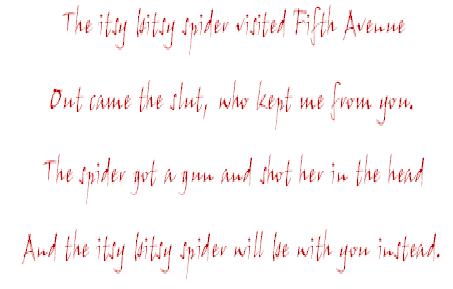 The itsy bitsy spider visited Fifth Avenue
Out came the slut, who kept me from you.
The spider got a gun and shot her in the head
And the itsy bitsy spider will be with you instead.